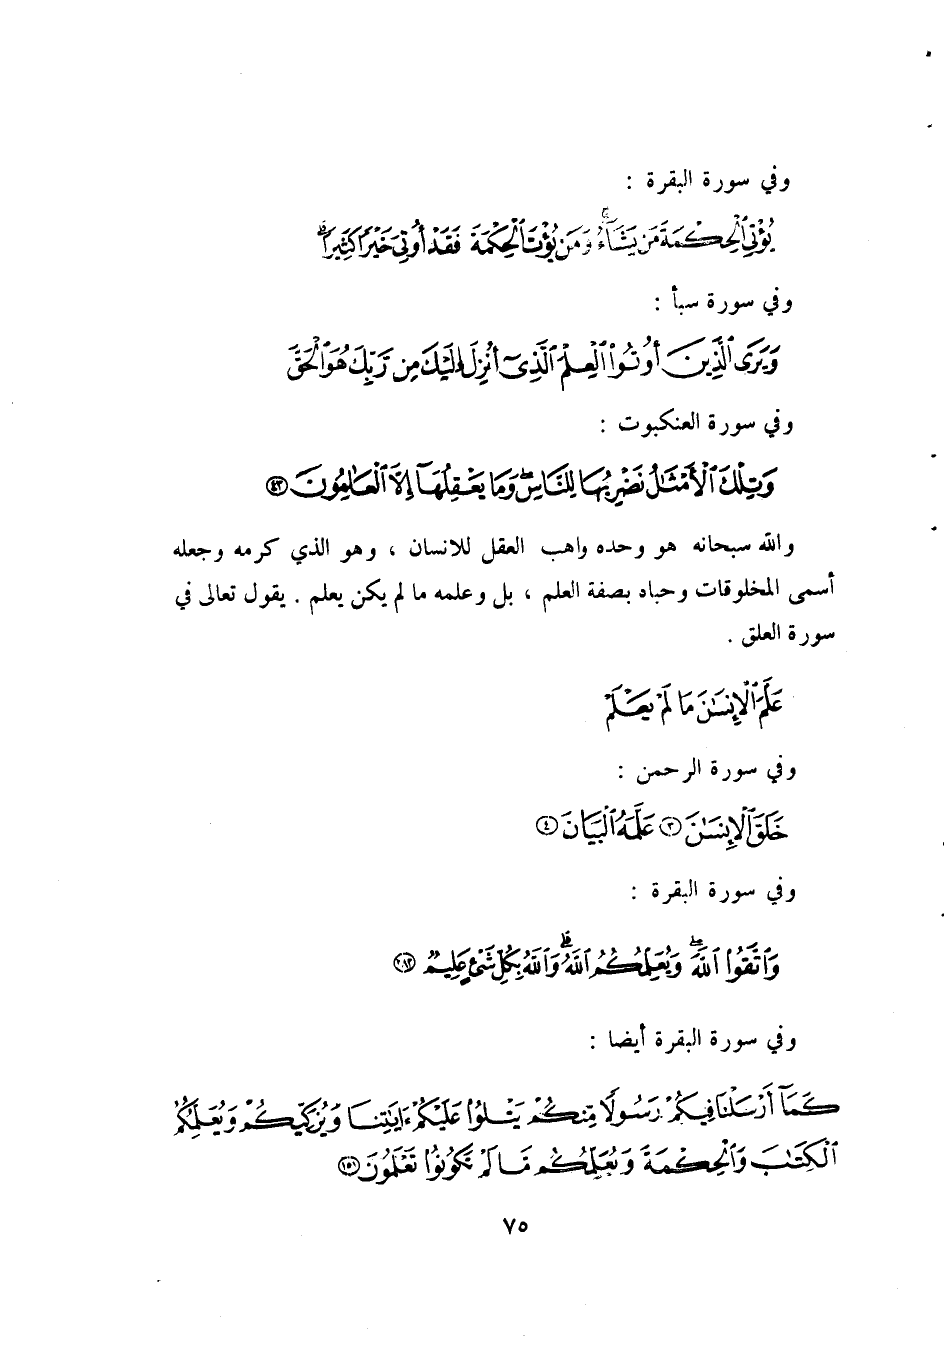 وفي سورة البقرة :
يُؤْتِي ٱلْحِكْمَةَ مَن يَشَآءُ ۚ وَمَن يُؤْتَ ٱلْحِكْمَةَ فَقَدْ أُوتِيَ خَيْرًا كَثِيرًا ۗ
وفي سورة سبأ :
وَيَرَى ٱلَّذِينَ أُوتُوا۟ ٱلْعِلْمَ ٱلَّذِىٓ أُنزِلَ إِلَيْكَ مِن رَّبِّكَ هُوَ ٱلْحَقَّ
وفي سورة العنكبوت :
وَتِلْكَ ٱلْأَمْثَٰلُ نَضْرِبُهَا لِلنَّاسِ ۖ وَمَا يَعْقِلُهَآ إِلَّا ٱلْعَٰلِمُونَ ٤٣
والله سبحانه هو وحده واهب العقل للانسان ، وهو الذي كرمه وجعله
أسمى المخلوقات وحباه بصفة العلم ، بل وعلمه ما لم يكن يعلم . يقول تعالى في
سورة العلق .
عَلَّمَ ٱلْإِنسَٰنَ مَا لَمْ يَعْلَمْ
وفي سورة الرحمن :
خَلَقَ ٱلْإِنسَٰنَ ٣ عَلَّمَهُ ٱلْبَيَانَ ٤
وفي سورة البقرة :
وَٱتَّقُوا۟ ٱللَّهَ ۖ وَيُعَلِّمُكُمُ ٱللَّهُ ۗ وَٱللَّهُ بِكُلِّ شَىْءٍ عَلِيمٌ ٢٨٢
وفي سورة البقرة أيضا :
كَمَآ أَرْسَلْنَا فِيكُمْ رَسُولًا مِّنكُمْ يَتْلُوا۟ عَلَيْكُمْ ءَايَٰتِنَا وَيُزَكِّيكُمْ وَيُعَلِّمُكُمُ
ٱلْكِتَٰبَ وَٱلْحِكْمَةَ وَيُعَلِّمُكُم مَّا لَمْ تَكُونُوا۟ تَعْلَمُونَ ١٥١
٧٥